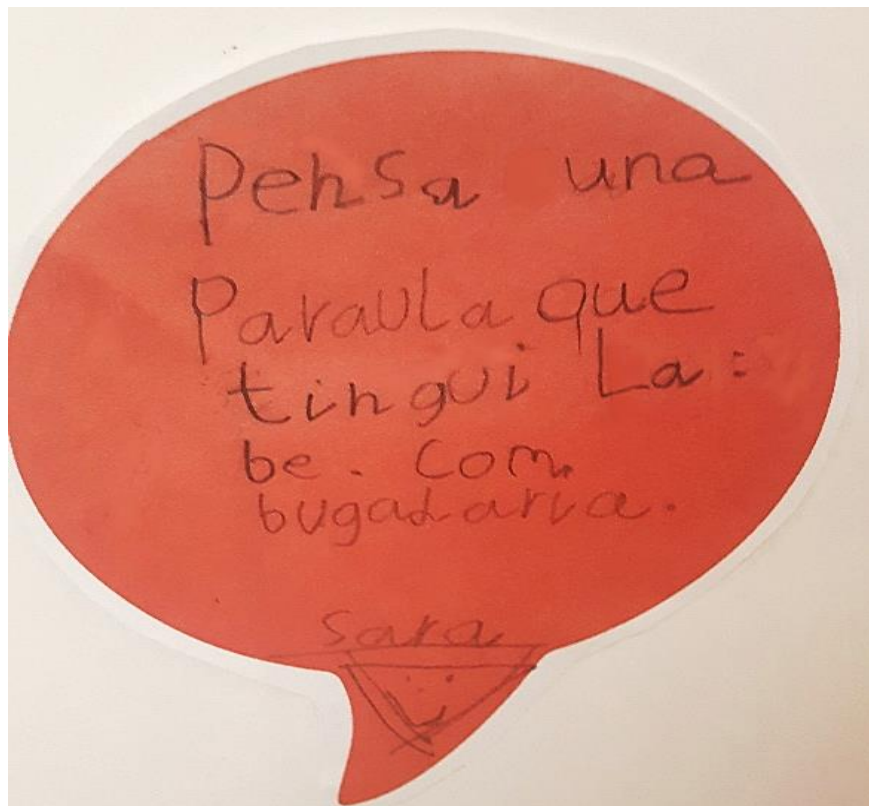 Pensa una
Paraula que
tingui La:
be. Com.
bugadaria.
Sara